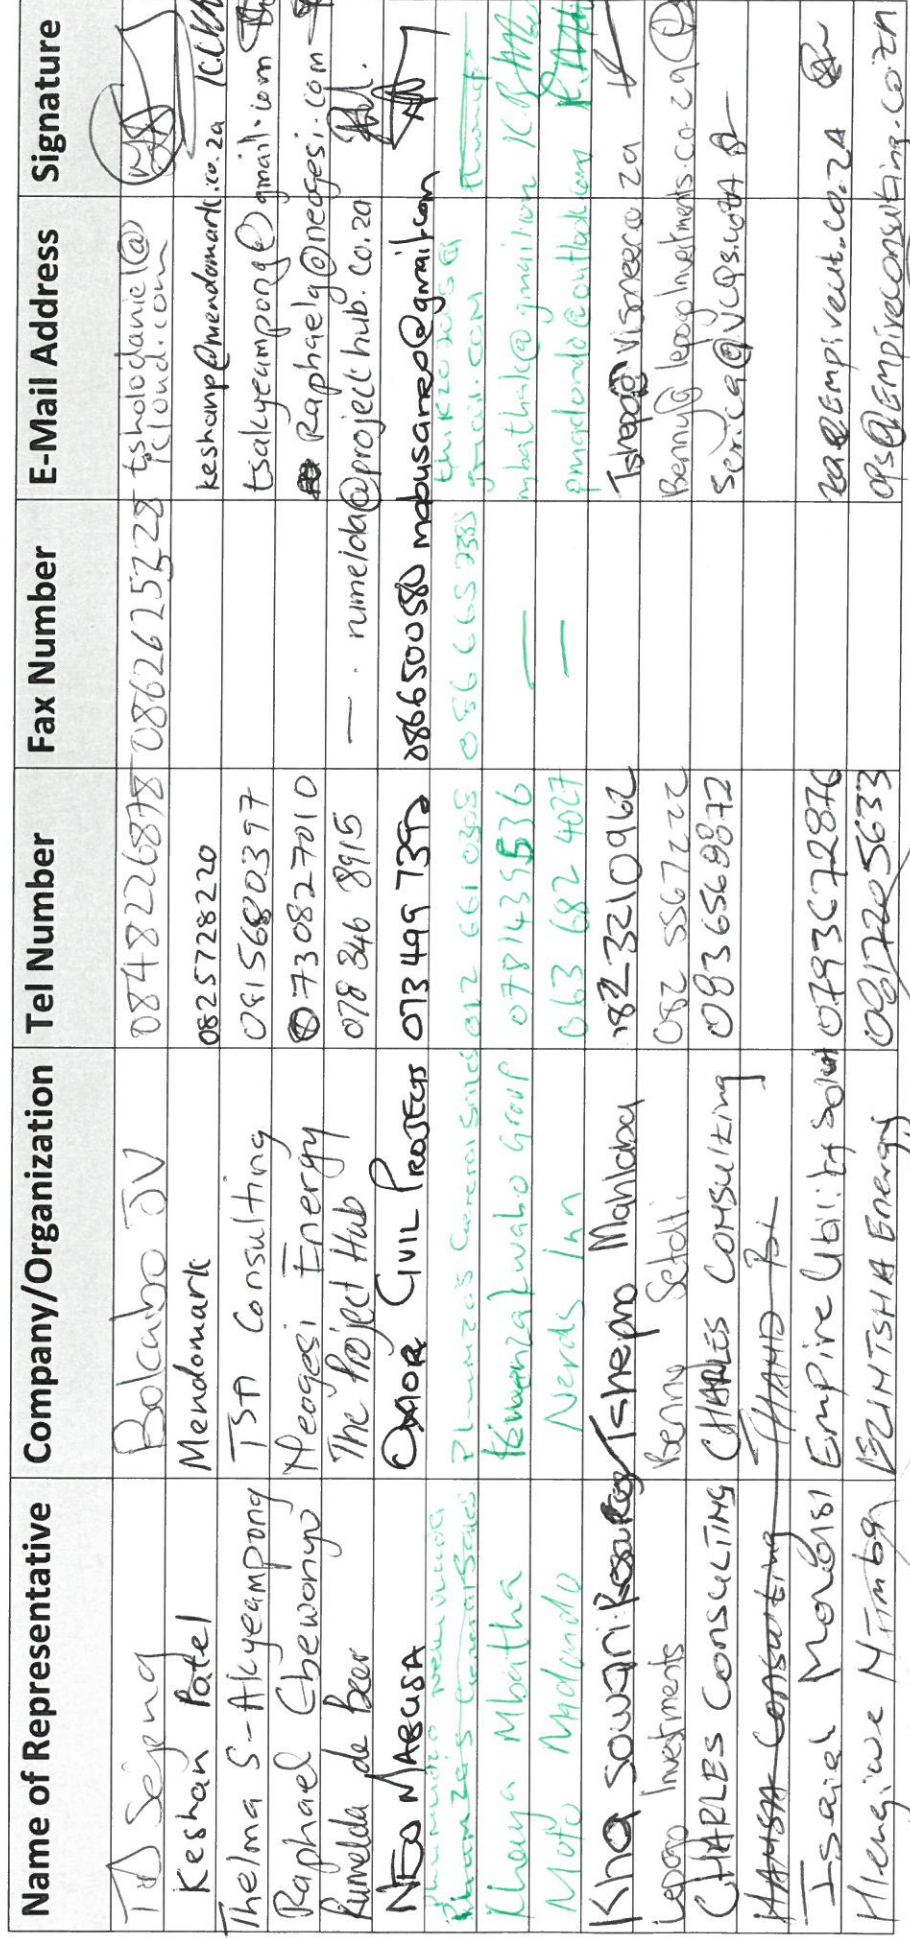 Name of Representative Company/Organization Tel Number Fax Number E-Mail Address Signature
TD Sejeng Bolcabo JV 0848226878 0862625228 tsholodaniel@icloud.com
Keshan Patel Mendomark 0825728220 keshanp@mendomark.co.za
Thelma S-Akyeampong TSA Consulting 0815680397 tsakyeampong@gmail.com
Raphael Chewonyo Neogesi Energy 0730827010 Raphaelg@neogesi.com
Rumelda de Beer The Project Hub 078 846 8915 — rumelda@projecthub.co.za
NEO MABUSA CIVIL PROJECTS 073 499 7392 0866500580 mabusaneo@gmail.com
012 661 0305 086 665 7385 gmail.com
Khaya Mbatha Kwanzakwabo Group 0781439536 — mbathak@gmail.com
Mofo Madondo Nerds Inn 063 682 4027 — pmadondo@outlook.com
Kha Sowari Resources Tshepo Mahlaba 0823210962 za
Lepogo Investments Benny Setati 082 5567222 Benny@lepogoInvestments.co.za
CHARLES CONSULTING CHARLES CONSULTING 0836569872
HAMSA Consulting
Isaiah Morobisi Empire Utility Solut 0793672876 za@Empireut.co.za
Hlengiwe Mtimba EZINTSHA Energy 0817205633 ops@Empireconsulting.co.za